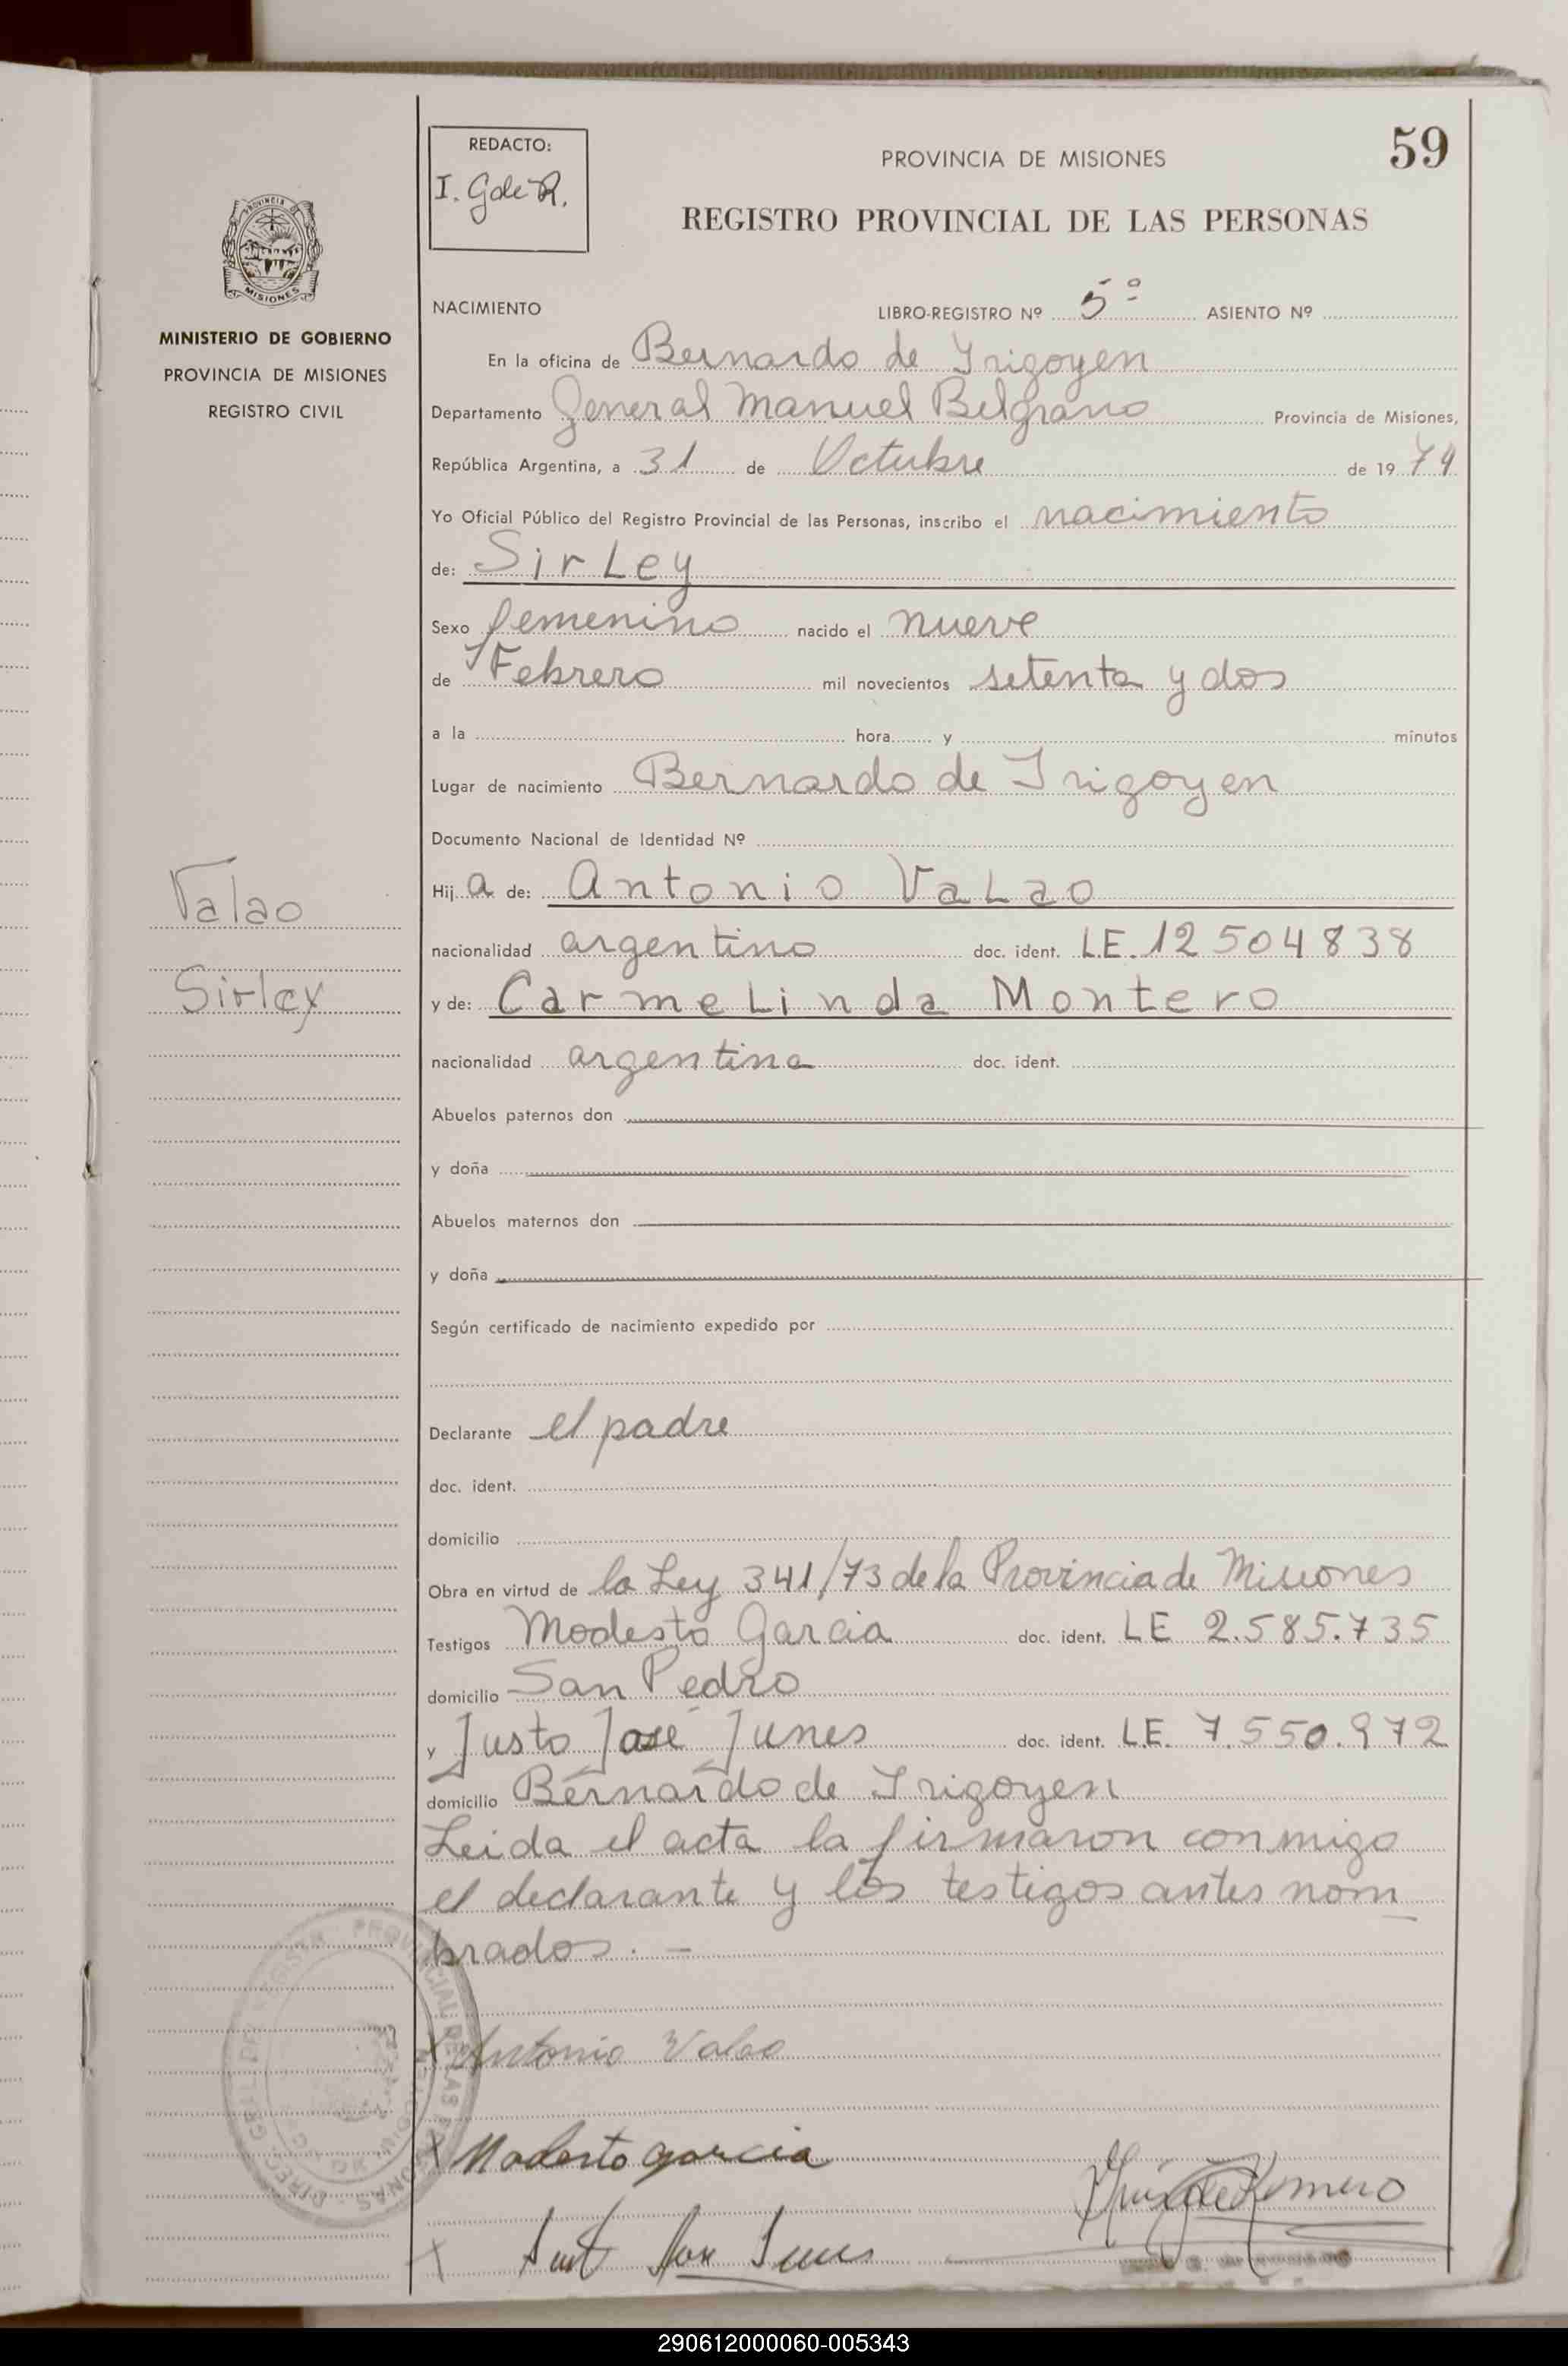 59
REDACTO:
I. G de R.
PROVINCIA DE MISIONES
REGISTRO PROVINCIAL DE LAS PERSONAS
PROVINCIA DE
MISIONES
MINISTERIO DE GOBIERNO
PROVINCIA DE MISIONES
REGISTRO CIVIL
NACIMIENTO LIBRO-REGISTRO Nº 5º ASIENTO Nº
En la oficina de Bernardo de Irigoyen
Departamento General Manuel Belgrano Provincia de Misiones,
República Argentina, a 31 de Octubre de 1974
Yo Oficial Público del Registro Provincial de las Personas, inscribo el nacimiento
de: Sirley
Sexo femenino nacido el nueve
de Febrero mil novecientos setenta y dos
a la hora y minutos
Lugar de nacimiento Bernardo de Irigoyen
Documento Nacional de Identidad Nº
Hija de: Antonio Valao
Valao
nacionalidad argentino doc. ident. L.E. 12 504 838
Sirley
y de: Carmelinda Montero
nacionalidad argentina doc. ident.
Abuelos paternos don
y doña
Abuelos maternos don
y doña
Según certificado de nacimiento expedido por
Declarante el padre
doc. ident.
domicilio
Obra en virtud de la Ley 341/73 de la Provincia de Misiones
Testigos Modesto Garcia doc. ident. LE 2.585.735
domicilio San Pedro
y Justo José Junes doc. ident. L.E. 7.550.972
domicilio Bernardo de Irigoyen
Leida el acta la firmaron conmigo
el declarante y los testigos antes nom
brados. -
Antonio Valao
Modesto garcia
Romero
290612000060-005343